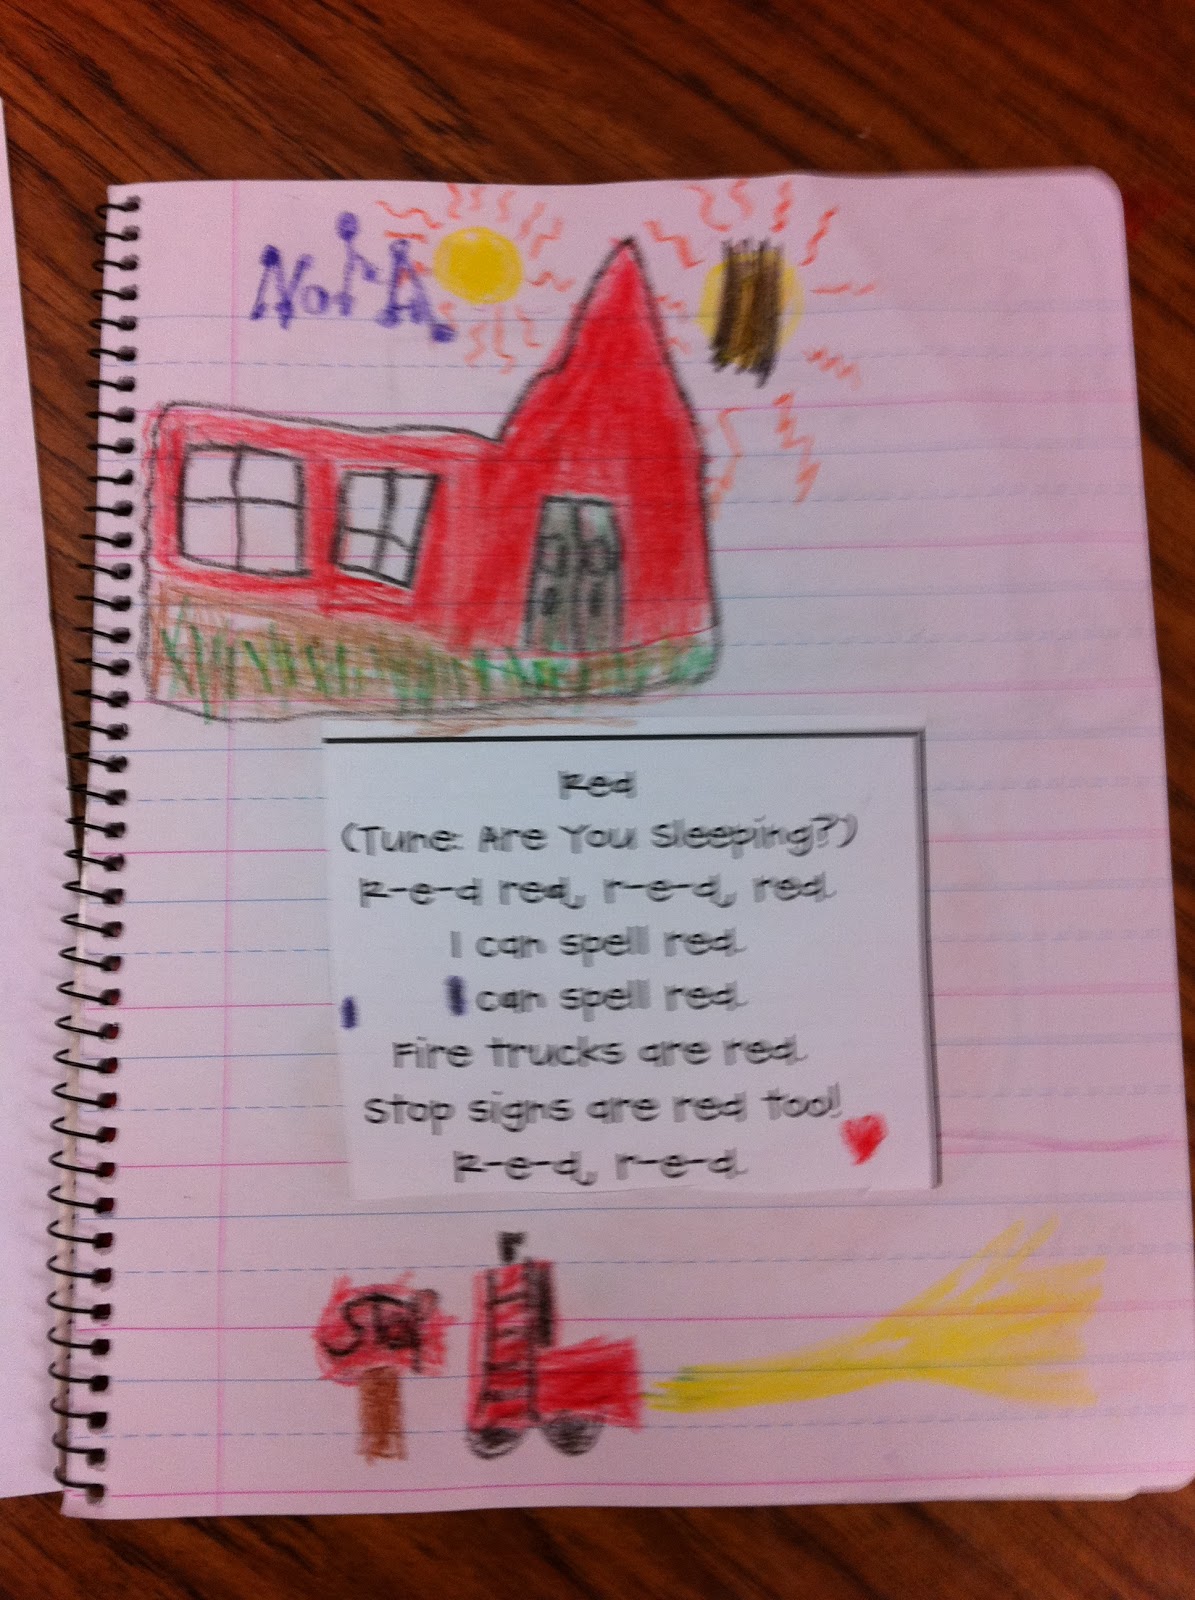 NorA
Red
(Tune: Are You Sleeping?)
R-e-d red, r-e-d, red.
I can spell red.
I can spell red.
Fire trucks are red.
Stop signs are red too!
R-e-d, r-e-d.
STOP